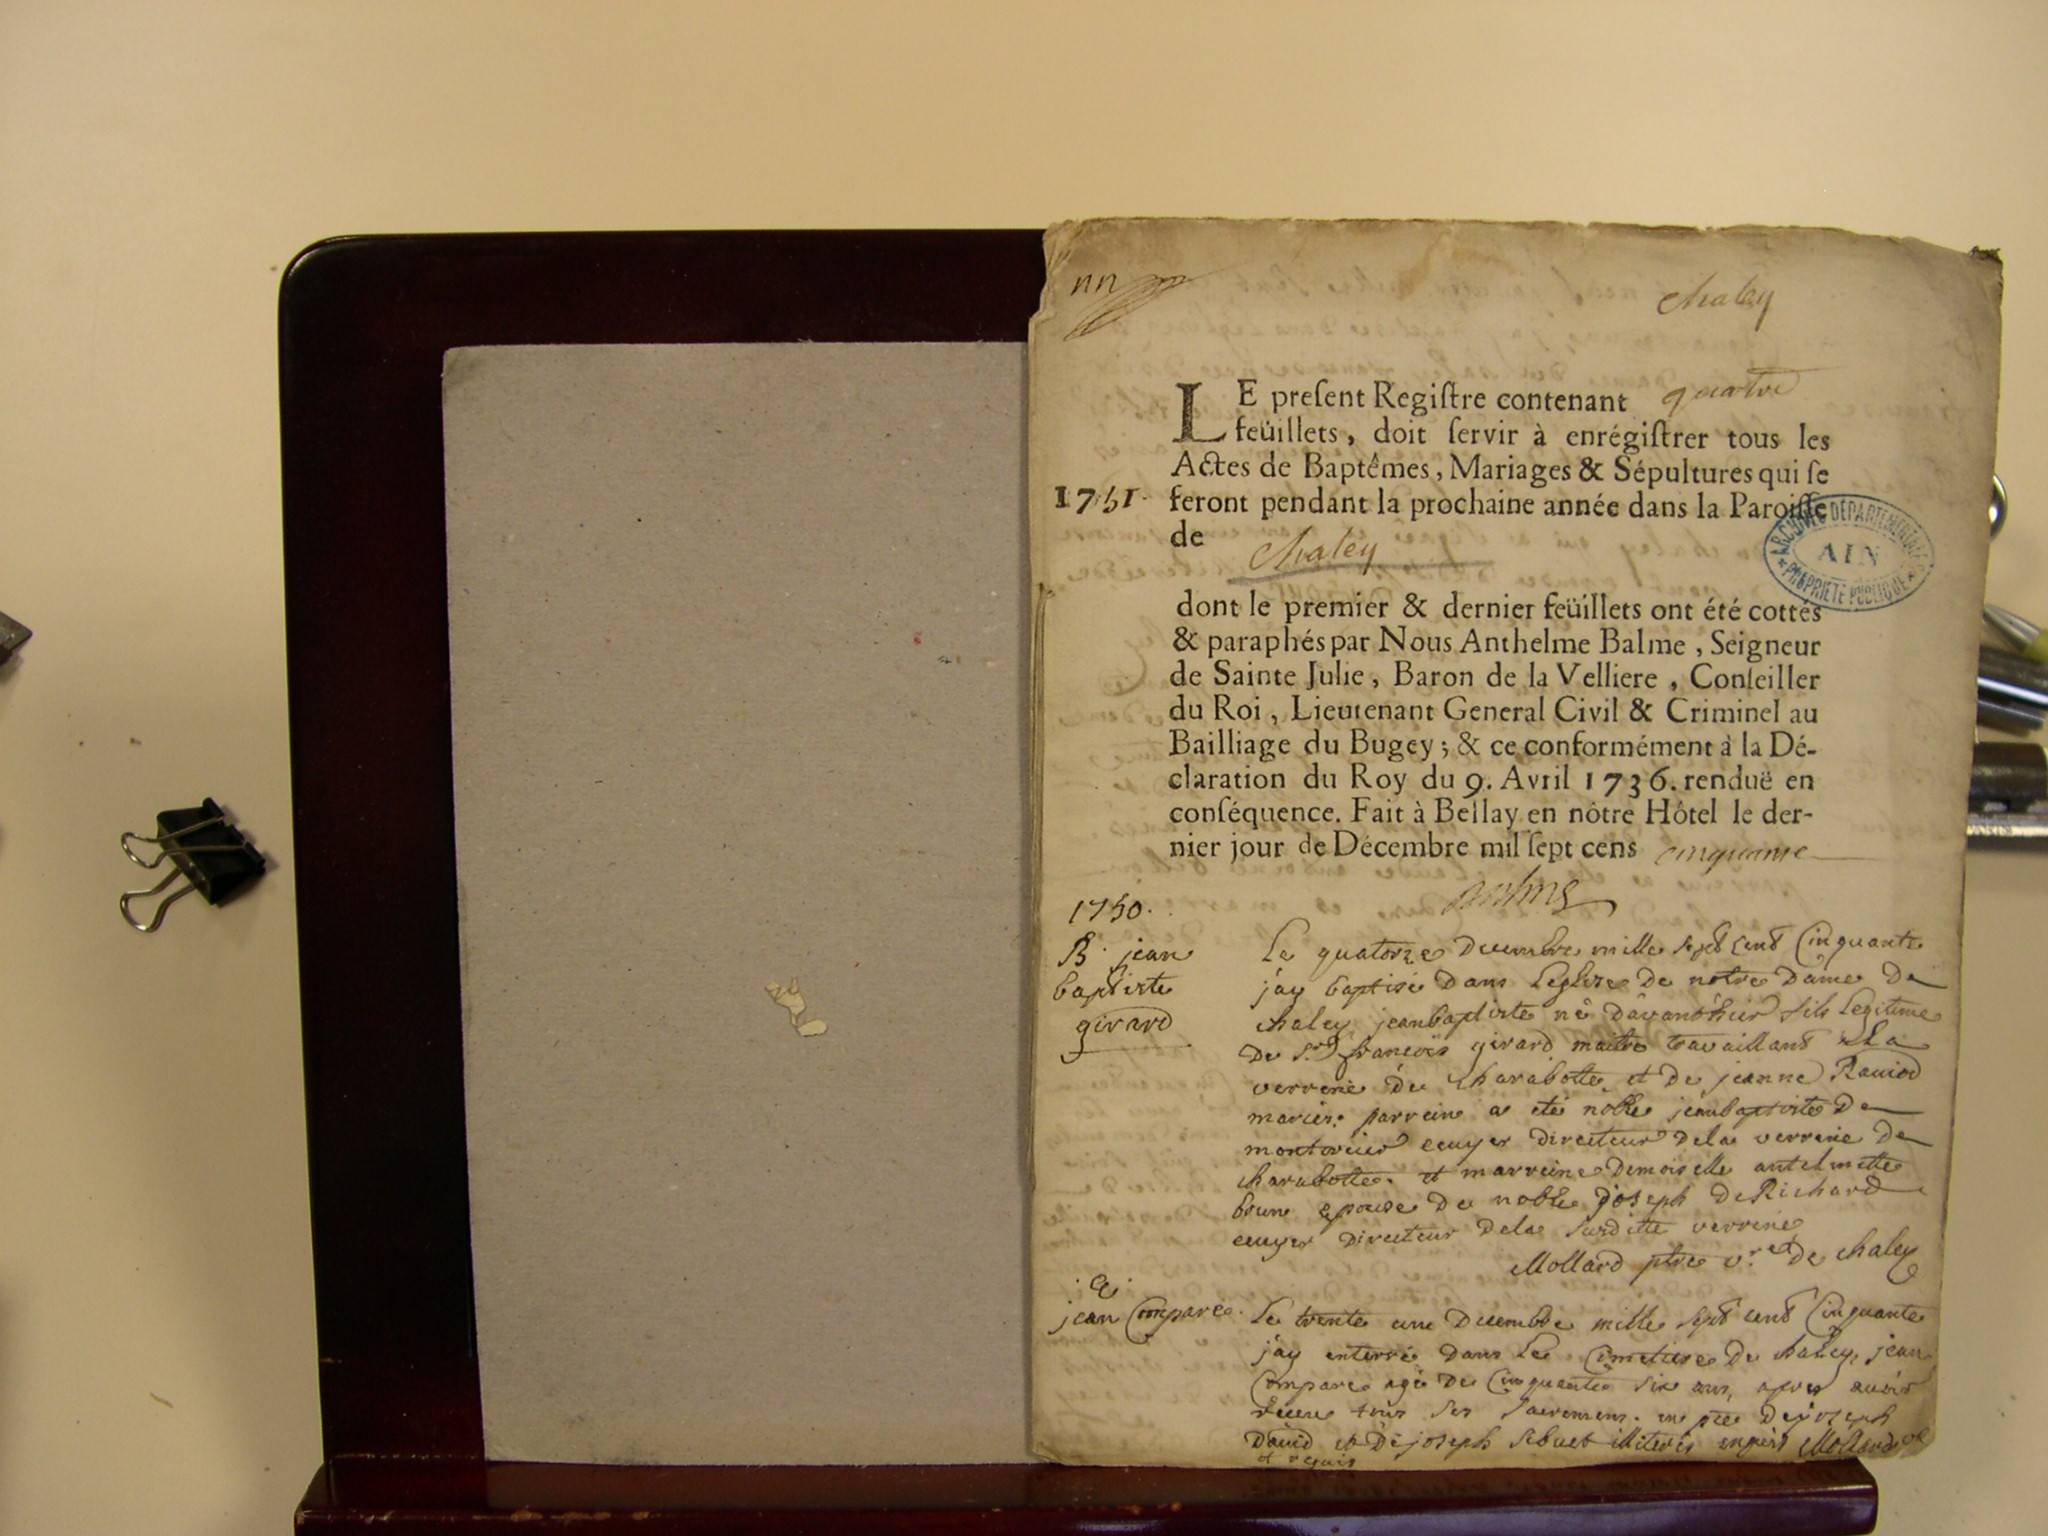 nn
chaley
LE preſent Regiſtre contenant quatre
feüillets, doit ſervir à enrégiſtrer tous les
Actes de Baptêmes, Mariages & Sépultures qui ſe
1751. feront pendant la prochaine année dans la Paroiſſe
de chaley
ARCHIVES DEPARTEMENTALES
AIN
PROPRIETE PUBLIQUE
dont le premier & dernier feüillets ont été cottés
& paraphés par Nous Anthelme Balme, Seigneur
de Sainte Julie, Baron de la Velliere, Conſeiller
du Roi, Lieutenant General Civil & Criminel au
Bailliage du Bugey; & ce conformément à la Dé-
claration du Roy du 9. Avril 1736. renduë en
conſéquence. Fait à Bellay en nôtre Hôtel le der-
nier jour de Décembre mil ſept cens cinquante
Balme
1750.
B. jean
baptiste
girard
Le quatorze Decembre mille sept cent Cinquante
j'ay baptisé dans Leglise De notre Dame De
chaley jeanbaptiste né D'avant hier fils Legitime
De Sr. françois girard maitre travaillant a La
verrerie de Charabotte, et De jeanne Raviod
mariés; parrein a eté noble jeanbaptiste De
ecuyer Directeur Dela verrerie De
charabotte. et marreine Demoiselle antelmette
brun epouse De noble joseph De Richard
ecuyer Directeur Dela Susditte verrerie
Mollard ptre De chaley
jean Compare.
Le trente une Decembre mille sept cent Cinquante
j'ay enterré Dans Le Cimetiere De chaley, jean
Compare agé De Cinquante six ans, apres avoir
receu tous ses Sacremens. en De joseph
David et De joseph Sebuet illiterés enquis Mollard
et requis